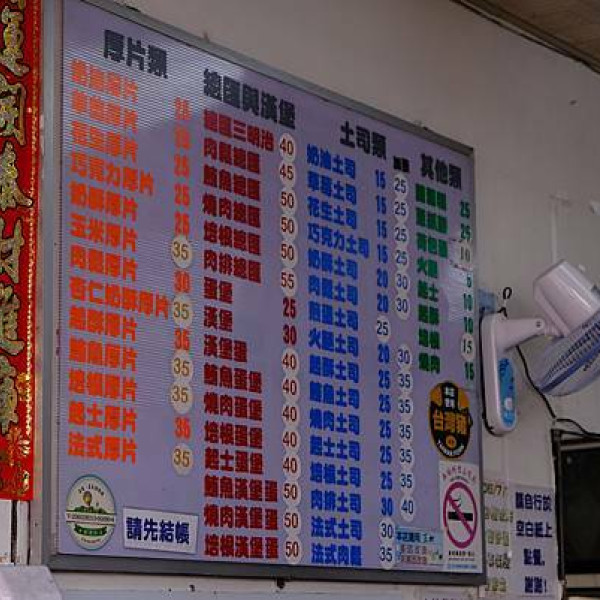 厚片類
奶油厚片 25
草莓厚片 25
花生厚片 25
巧克力厚片 25
奶酥厚片 25
玉米厚片 35
肉鬆厚片 30
杏仁奶酥厚片 35
鮪魚厚片 35
培根厚片 35
起士厚片 35
法式厚片 35
總匯與漢堡
總匯三明治 40
肉鬆總匯 45
鮪魚總匯 50
燒肉總匯 50
培根總匯 50
肉排總匯 55
蛋堡 25
漢堡 30
漢堡蛋 40
鮪魚蛋堡 40
燒肉蛋堡 40
培根蛋堡 40
起士蛋堡 40
鮪魚漢堡蛋 50
燒肉漢堡蛋 50
培根漢堡蛋 50
土司類
奶油土司 15 25
草莓土司 15 25
花生土司 15 25
巧克力土司 15 25
奶酥土司 20 30
肉鬆土司 20 30
煎蛋土司 25
火腿土司 20 30
鮪魚土司 25 35
燒肉土司 25 35
起士土司 25 35
培根土司 25 35
肉排土司 30 40
法式土司 30
法式肉鬆 35
其他類
荷包蛋 10
火腿 5
起士 10
培根 15
燒肉 15
請先結帳
台灣鯛
請自行於
空白紙上
點餐。
謝謝!